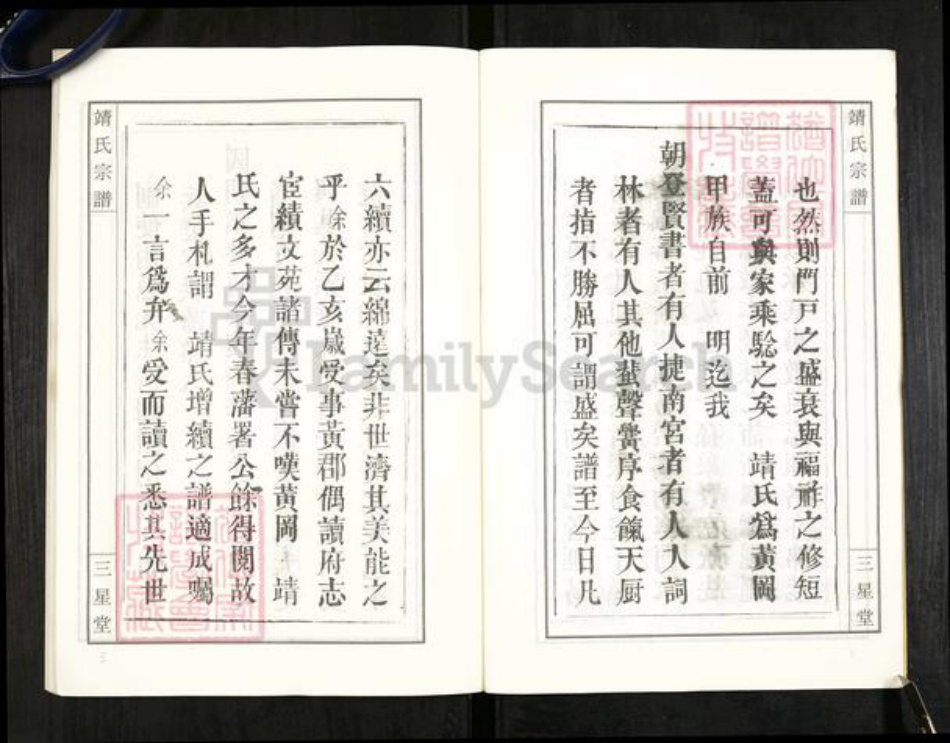 靖氏宗譜
三星堂
也然則門戸之盛衰與福祚之修短
蓋可與家乘騐之矣　靖氏爲黃岡
甲族自前　明迄我
朝登賢書者有人捷南宮者有人入詞
林者有人其他蜚聲黌序食餼天厨
者指不勝屈可謂盛矣譜至今日凡
六續亦云綿遠矣非世濟其美能之
乎余於乙亥嵗受事黃郡偶讀府志
宦績文苑諸傳未嘗不嘆黃岡　靖
氏之多才今年春藩署公餘得閱故
人手札謂　靖氏增續之譜適成囑
余一言爲弁余受而讀之悉其先世
靖氏宗譜
三星堂
FamilySearch